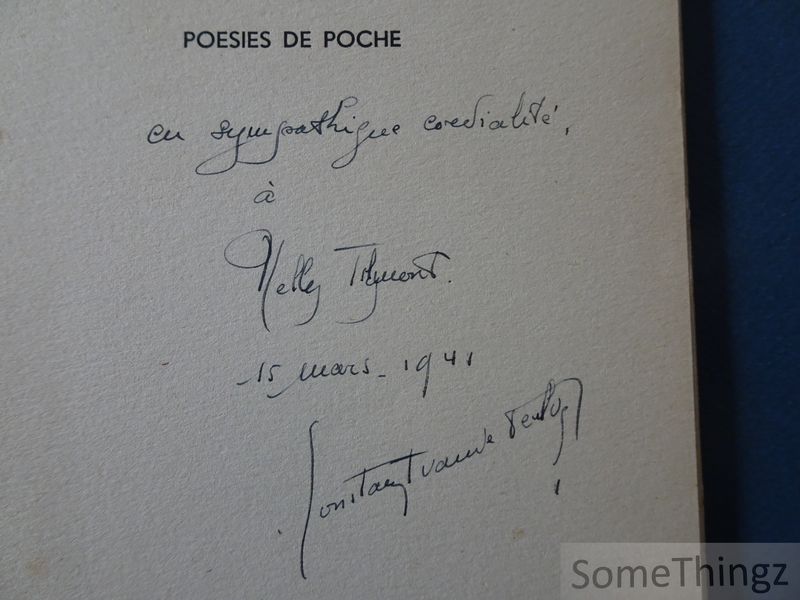 POESIES DE POCHE
en sympathique cordialité,
à
Nelly
15 mars - 1941
Constant
SomeThingz